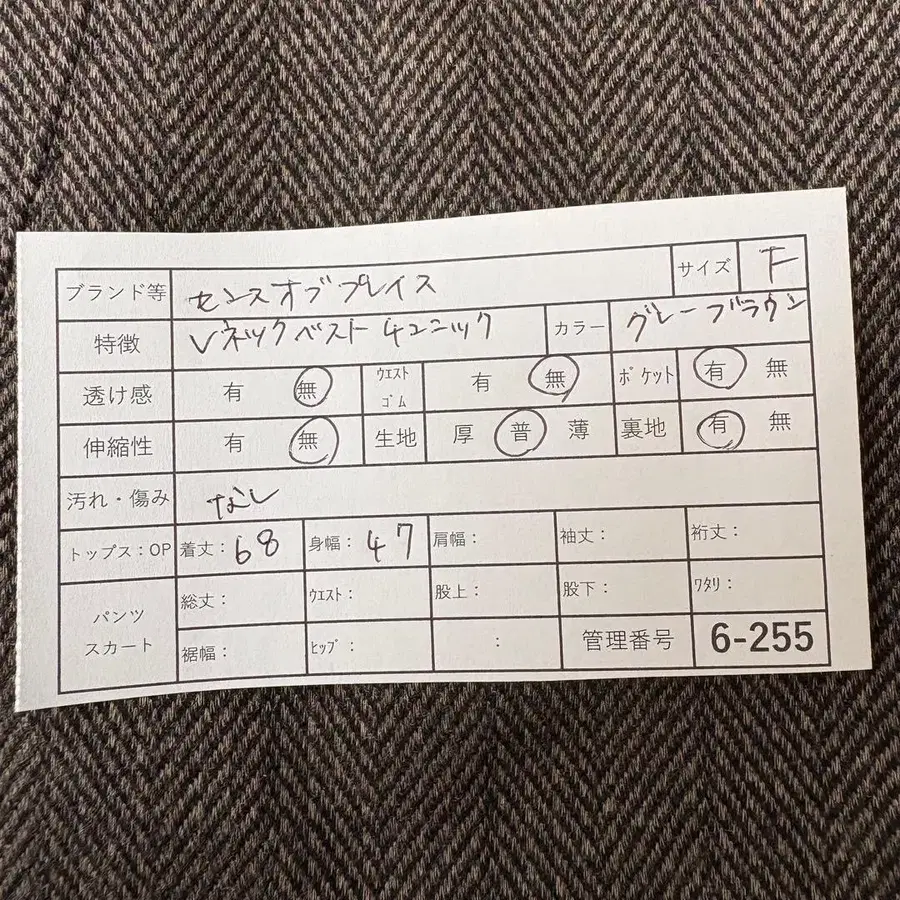 ブランド等 センスオブプレイス サイズ F
特徴 Vネックベスト チュニック カラー グレーブラウン
透け感 有 無 ウエストゴム 有 無 ポケット 有 無
伸縮性 有 無 生地 厚 普 薄 裏地 有 無
汚れ・傷み なし
トップス:OP 着丈:68 身幅:47 肩幅: 袖丈: 裄丈:
パンツ スカート 総丈: ウエスト: 股上: 股下: ワタリ:
裾幅: ヒップ: : 管理番号 6-255